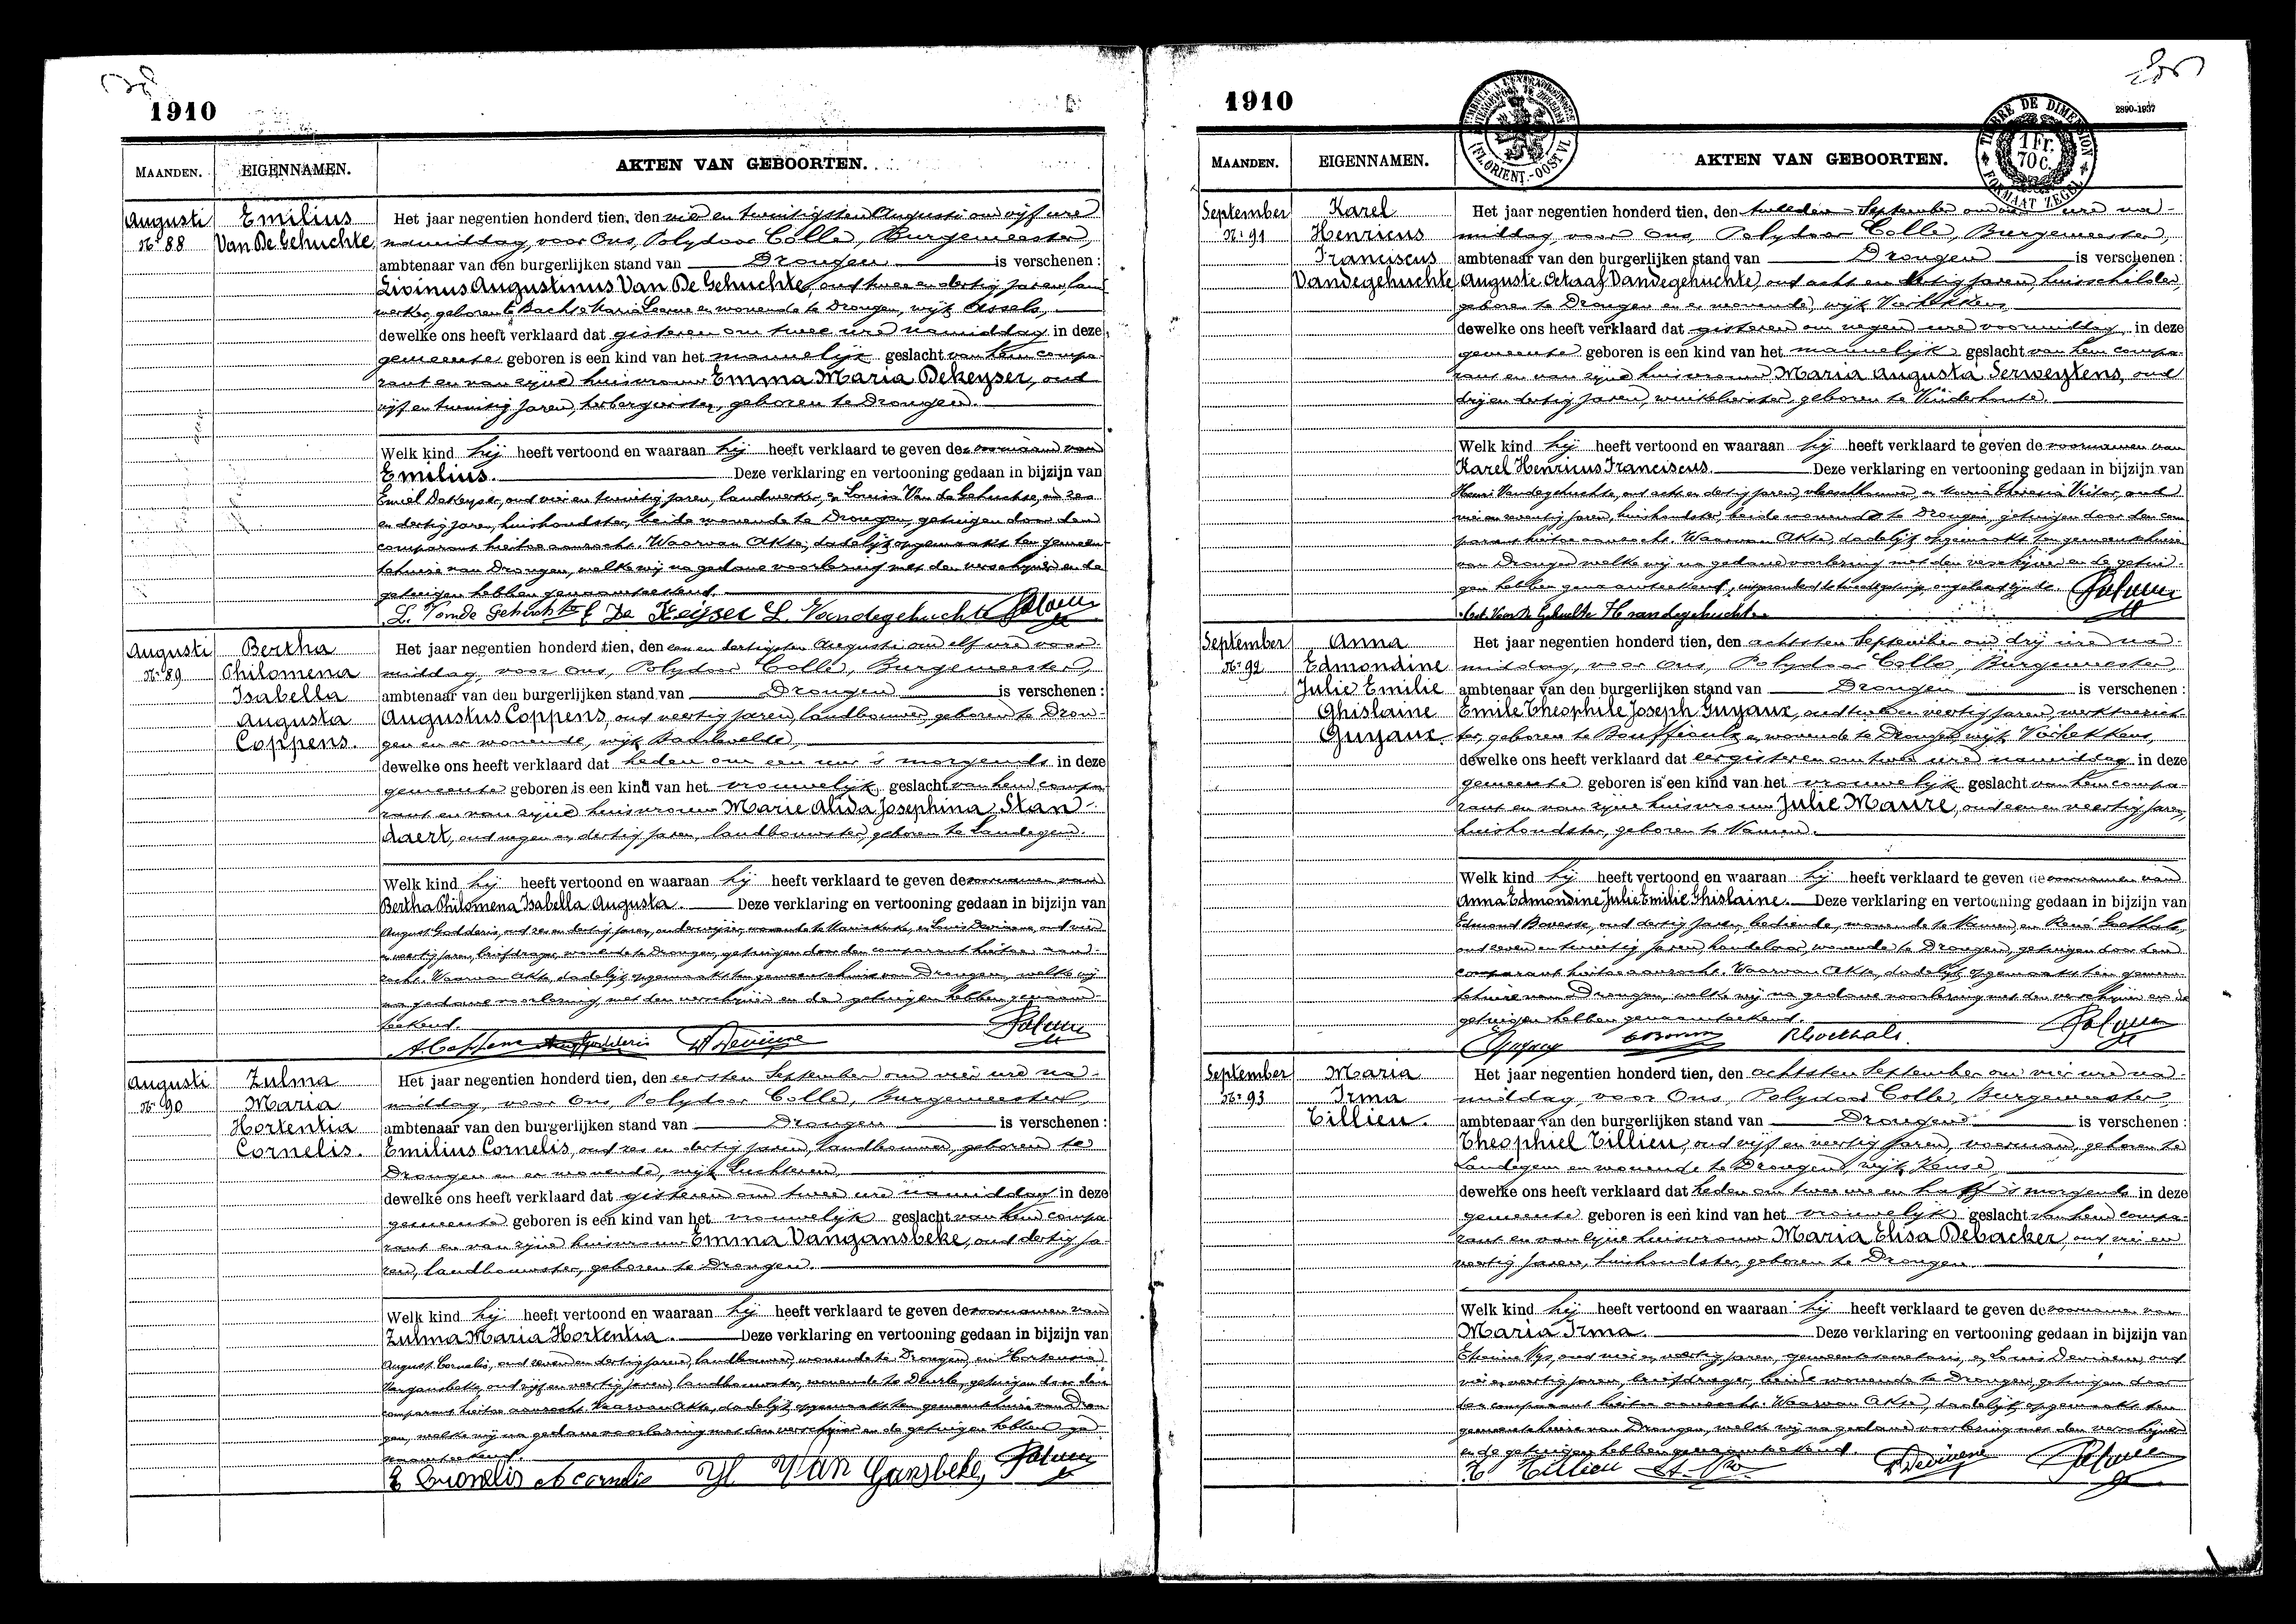 1910
MAANDEN. EIGENNAMEN. AKTEN VAN GEBOORTEN.
Augusti
Nr 88
Emilius
Van De Gehuchte
Het jaar negentien honderd tien, den vier en twintigsten Augusti om vijf ure
namiddag, voor Ons, Polydoor Colle, Burgemeester,
ambtenaar van den burgerlijken stand van Drongen is verschenen:
Livinus Augustinus Van De Gehuchte, oud twee en dertig jaren, land-
werker, geboren te Bachte Maria Leerne en wonende te Drongen, wijk Assels,
dewelke ons heeft verklaard dat gisteren om twee ure namiddag in deze
gemeente geboren is een kind van het mannelijk geslacht van hem compa-
rant en van zijne huisvrouw Emma Maria Dekeyser, oud
vijf en twintig jaren, herbergierster, geboren te Drongen.
Welk kind hij heeft vertoond en waaraan hij heeft verklaard te geven de voornaam van
Emilius. Deze verklaring en vertooning gedaan in bijzijn van
Emiel DeKeyser, oud vier en twintig jaren, landwerker, en Louisa Van de Gehuchte, oud zes
en dertig jaren, huishoudster, beide wonende te Drongen, getuigen door den
comparant hiertoe aanzocht. Waarvan Akte, dadelijk opgemaakt ten gemeen-
tehuize van Drongen, welke wij na gedane voorlezing met den verschijner en de
getuigen hebben genaamteekend.
L. Van de Gehuchte E De Keijser L. Vandegehuchte
Augusti
Nr 89
Bertha
Philomena
Isabella
Augusta
Coppens.
Het jaar negentien honderd tien, den een en dertigsten Augusti om elf ure voor-
middag, voor Ons, Polydoor Colle, Burgemeester,
ambtenaar van den burgerlijken stand van Drongen is verschenen:
Augustus Coppens, oud veertig jaren, landbouwer, geboren te Dron-
gen en er wonende, wijk Baarlevelde,
dewelke ons heeft verklaard dat heden om een uur 's morgends in deze
gemeente geboren is een kind van het vrouwelijk geslacht van hem compa-
rant en van zijne huisvrouw Marie Alida Josephina Stan-
daert, oud negen en dertig jaren, landbouwster, geboren te Landegem.
Welk kind hij heeft vertoond en waaraan hij heeft verklaard te geven de voornamen van
Bertha Philomena Isabella Augusta. Deze verklaring en vertooning gedaan in bijzijn van
August Godderis, oud zes en dertig jaren, onderwijzer, wonende te Mariakerke, en Louis Deviaene, oud vier
en veertig jaren, briefdrager, wonende te Drongen, getuigen door den comparant hiertoe aan-
zocht. Waarvan Akte, dadelijk opgemaakt ten gemeentehuize van Drongen, welke wij
na gedane voorlezing met den verschijner en de getuigen hebben genaam-
teekend.
A. Coppens Aug Godderis
Augusti
Nr 90
Zulma
Maria
Hortentia
Cornelis.
Het jaar negentien honderd tien, den eersten September om vier ure na-
middag, voor Ons, Polydoor Colle, Burgemeester,
ambtenaar van den burgerlijken stand van Drongen is verschenen:
Emilius Cornelis, oud zes en dertig jaren, landbouwer, geboren te
Drongen en er wonende, wijk Luchteren,
dewelke ons heeft verklaard dat gisteren om twee ure namiddag in deze
gemeente geboren is een kind van het vrouwelijk geslacht van hem compa-
rant en van zijne huisvrouw Emma Vangansbeke, oud dertig ja-
ren, landbouwster, geboren te Drongen.
Welk kind hij heeft vertoond en waaraan hij heeft verklaard te geven de voornamen van
Zulma Maria Hortentia. Deze verklaring en vertooning gedaan in bijzijn van
August Cornelis, oud zeven en dertig jaren, landbouwer, wonende te Drongen, en Hortensia
Vangansbeke, oud vijf en veertig jaren, landbouwster, wonende te Deurle, getuigen door den
comparant hiertoe aanzocht. Waarvan Akte, dadelijk opgemaakt ten gemeentehuize van Dron-
gen, welke wij na gedane voorlezing met den verschijner en de getuigen hebben ge-
naamteekend.
E Cornelis A Cornelis H Van Gansbeke
1910
2890-1937
TIMBRE DE DIMENSION
1 Fr. 70 c.
FORMAAT ZEGEL
(FLORIENT.-OOST VL.)
MAANDEN. EIGENNAMEN. AKTEN VAN GEBOORTEN.
September
Nr 91
Karel
Henricus
Franciscus
Vandegehuchte
Het jaar negentien honderd tien, den tweeden September om ure na-
middag, voor Ons, Polydoor Colle, Burgemeester,
ambtenaar van den burgerlijken stand van Drongen is verschenen:
Auguste Octaaf Vandegehuchte, oud acht en dertig jaren, huisschilder,
geboren te Drongen en er wonende, wijk Varkekens,
dewelke ons heeft verklaard dat gisteren om negen ure voormiddag in deze
gemeente geboren is een kind van het mannelijk geslacht van hem compa-
rant en van zijne huisvrouw Maria Augusta Serweytens, oud
drij en dertig jaren, winkelierster, geboren te Vinderhoute.
Welk kind hij heeft vertoond en waaraan hij heeft verklaard te geven de voornamen van
Karel Henricus Franciscus. Deze verklaring en vertooning gedaan in bijzijn van
Henri Vandegehuchte, oud acht en dertig jaren, vleeschhouwer, en Maria Theresia, oud
vier en zeventig jaren, huishoudster, beide wonende te Drongen, getuigen door den com-
parant hiertoe aanzocht. Waarvan Akte, dadelijk opgemaakt ten gemeentehuize
van Drongen welke wij na gedane voorlezing met den verschijner en de getui-
gen hebben genaamteekend, uitgezonderd de tweede getuige, ongeletterd zijnde.
Aut. Van De Gehuchte H vandegehuchte
September
Nr 92
Anna
Edmondine
Julie Emilie
Ghislaine
Guyaux.
Het jaar negentien honderd tien, den achtsten September om drij ure na-
middag, voor Ons, Polydoor Colle, Burgemeester,
ambtenaar van den burgerlijken stand van Drongen is verschenen:
Emile Theophile Joseph Guyaux, oud twee en veertig jaren, werktoezich-
ter, geboren te Bouffioulx en wonende te Drongen, wijk Varkekens,
dewelke ons heeft verklaard dat eergisteren om twee ure namiddag in deze
gemeente geboren is een kind van het vrouwelijk geslacht van hem compa-
rant en van zijne huisvrouw Julie Maure, oud een en veertig jaren,
huishoudster, geboren te Namen.
Welk kind hij heeft vertoond en waaraan hij heeft verklaard te geven de voornamen van
Anna Edmondine Julie Emilie Ghislaine. Deze verklaring en vertooning gedaan in bijzijn van
Edmond Bovesse, oud dertig jaren, bediende, wonende te Namen, en René Goethals,
oud zeven en twintig jaren, handelaar, wonende te Drongen, getuigen door den
comparant hiertoe aanzocht. Waarvan Akte, dadelijk opgemaakt ten gemeen-
tehuize van Drongen, welke wij na gedane voorlezing met den verschijner en de
getuigen hebben genaamteekend.
R Goethals.
September
Nr 93
Maria
Irma
Tillieu.
Het jaar negentien honderd tien, den achtsten September om vier ure na-
middag, voor Ons, Polydoor Colle, Burgemeester,
ambtenaar van den burgerlijken stand van Drongen is verschenen:
Theophiel Tillieu, oud vijf en veertig jaren, voerman, geboren te
Landegem en wonende te Drongen, wijk Keuse,
dewelke ons heeft verklaard dat heden om twee ure en half 's morgends in deze
gemeente geboren is een kind van het vrouwelijk geslacht van hem compa-
rant en van zijne huisvrouw Maria Elisa Debacker, oud vier en
veertig jaren, huishoudster, geboren te Drongen.
Welk kind hij heeft vertoond en waaraan hij heeft verklaard te geven de voornamen van
Maria Irma. Deze verklaring en vertooning gedaan in bijzijn van
Etienne oud vier en veertig jaren, gemeentesecretaris, en Louis Deviaene, oud
vier en veertig jaren, briefdrager, beide wonende te Drongen, getuigen door
den comparant hiertoe aanzocht. Waarvan Akte, dadelijk opgemaakt ten
gemeentehuize van Drongen, welke wij na gedane voorlezing met den verschijner
en de getuigen hebben genaamteekend.
T. Tillieu